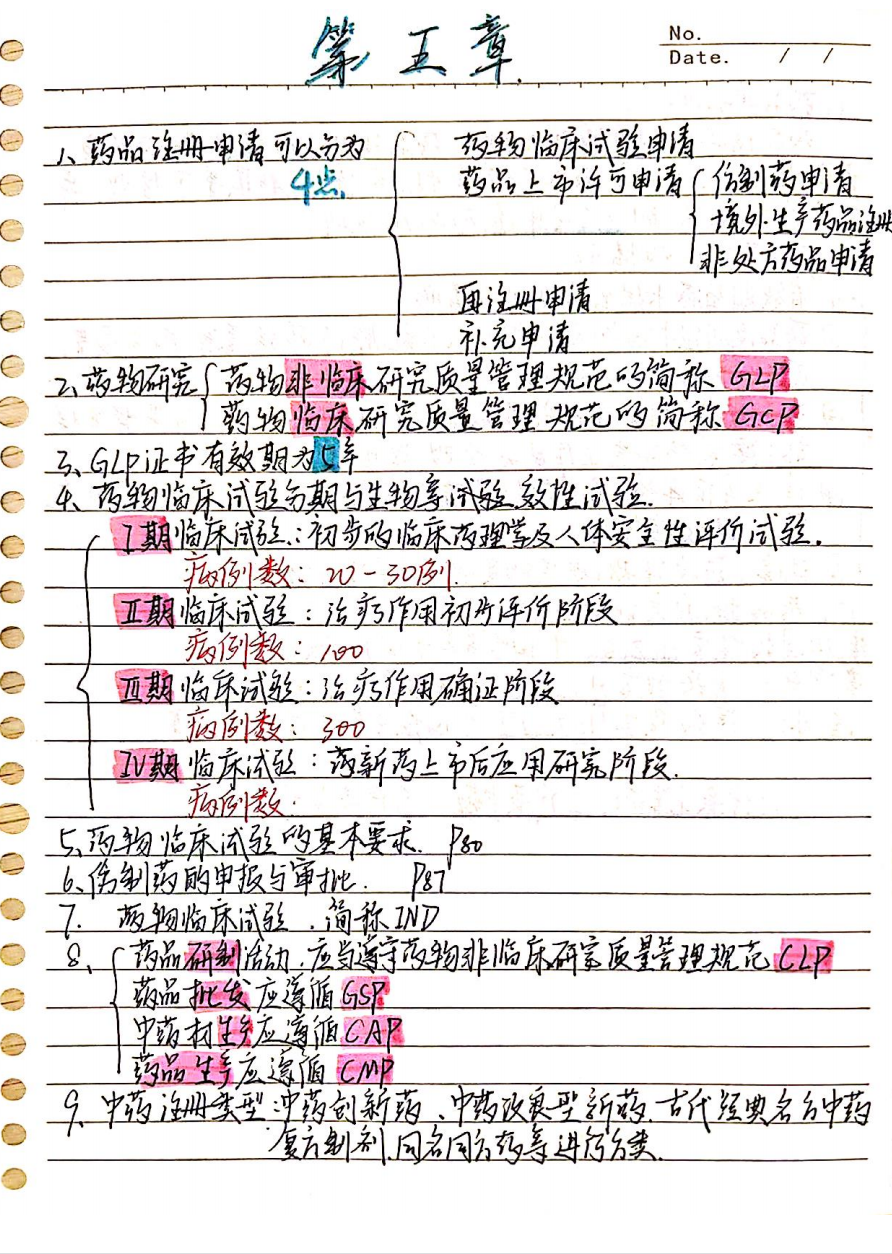 第五章
No.
Date. / /
1、药品注册申请可以分为 药物临床试验申请
4点. 药品上市许可申请 仿制药申请
境外生产药品注册
非处方药品申请
再注册申请
补充申请
2、药物研究 药物非临床研究质量管理规范的简称 GLP
药物临床研究质量管理规范的简称 GCP
3、GLP证书有效期为5年
4、药物临床试验分期与生物等试验效性试验.
I期临床试验:初步的临床药理学及人体安全性评价试验.
病例数: 20-30例.
II期临床试验:治疗作用初步评价阶段
病例数: 100
III期临床试验:治疗作用确证阶段
病例数: 300
IV期临床试验:药新药上市后应用研究阶段.
病例数.
5、药物临床试验的基本要求. P80
6、仿制药的申报与审批. P87
7. 药物临床试验.简称IND
8、药品研制活动.应当遵守药物非临床研究质量管理规范 CLP
药品批发应遵循 GSP
中药材生产应遵循 CAP
药品生产应遵循 CMP
9、中药注册类型:中药创新药、中药改良型新药.古代经典名方中药
复方制剂.同名同方药等进行分类.